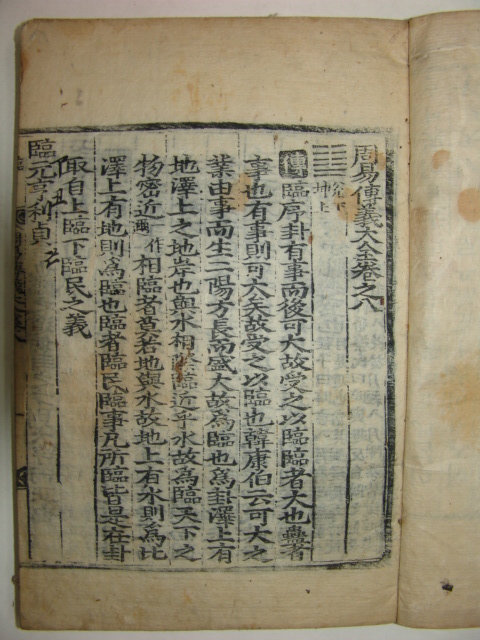 周易傳義大全卷之八
兌下
坤上
傳臨序卦有事而後可大故受之以臨臨者大也蠱者
事也有事則可大矣故受之以臨也韓康伯云可大之
業由事而生二陽方長而盛大故爲臨也爲卦澤上有
地澤上之地岸也與水相際臨近乎水故爲臨天下之
物密近相臨者莫若地與水故地上有水則爲比
澤上有地則爲臨也臨者臨民臨事凡所臨皆是在卦
取自上臨下臨民之義
臨元亨利貞